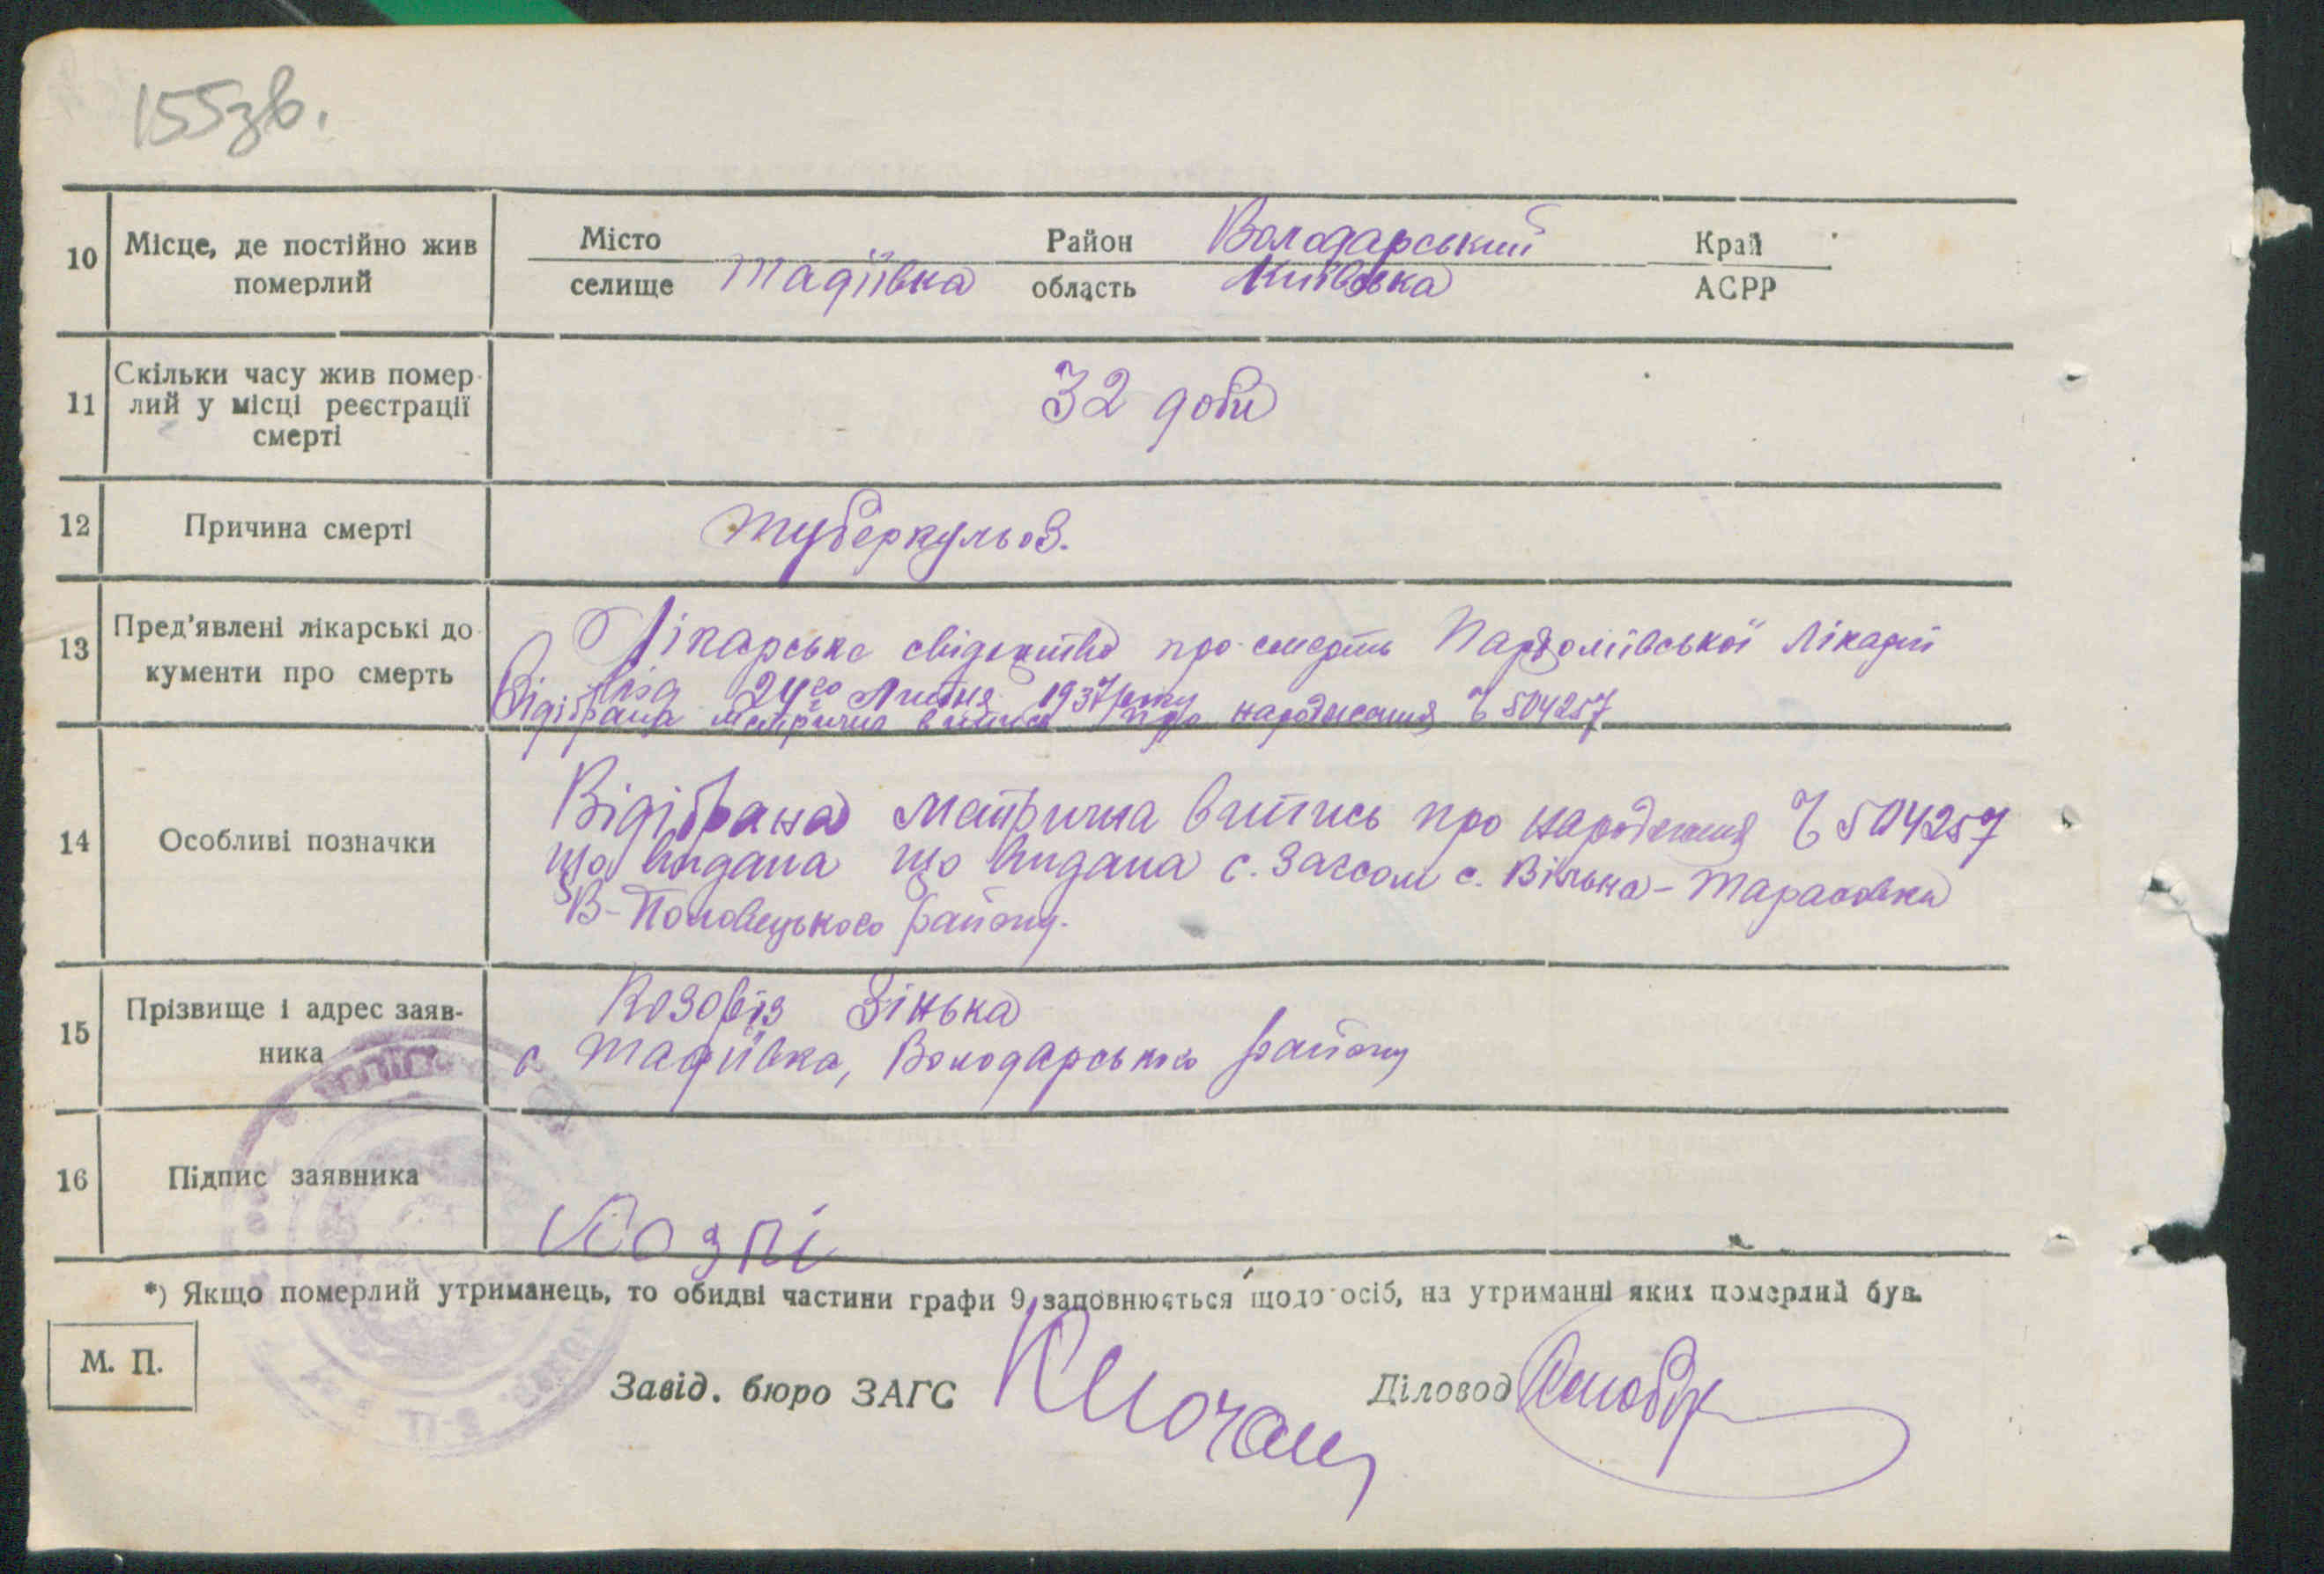 155зв.
10 Місце, де постійно жив померлий
Місто
селище Тадіївка
Район Володарський
область Київська
Край
АСРР
11 Скільки часу жив помер-
лий у місці реєстрації
смерті
32 доби
12 Причина смерті
туберкульоз.
13 Пред'явлені лікарські до-
кументи про смерть
Лікарське свідоцтво про смерть Пархоміївської Лікарні
від 24го Липня 1937 року
Відібрана метрична випись про народження Ч 504257
14 Особливі позначки
Відібрана метрична випись про народження Ч 504257
що видана що видана с. Загсом с. Вільна-Тарасовка
В-Половецького району.
15 Прізвище і адрес заяв-
ника
Козоріз Зінька
с Тадіївка, Володарського району
16 Підпис заявника
*) Якщо померлий утриманець, то обидві частини графи 9 заповнюються щодо осіб, на утриманні яких померлий був.
М. П.
Завід. бюро ЗАГС
Діловод